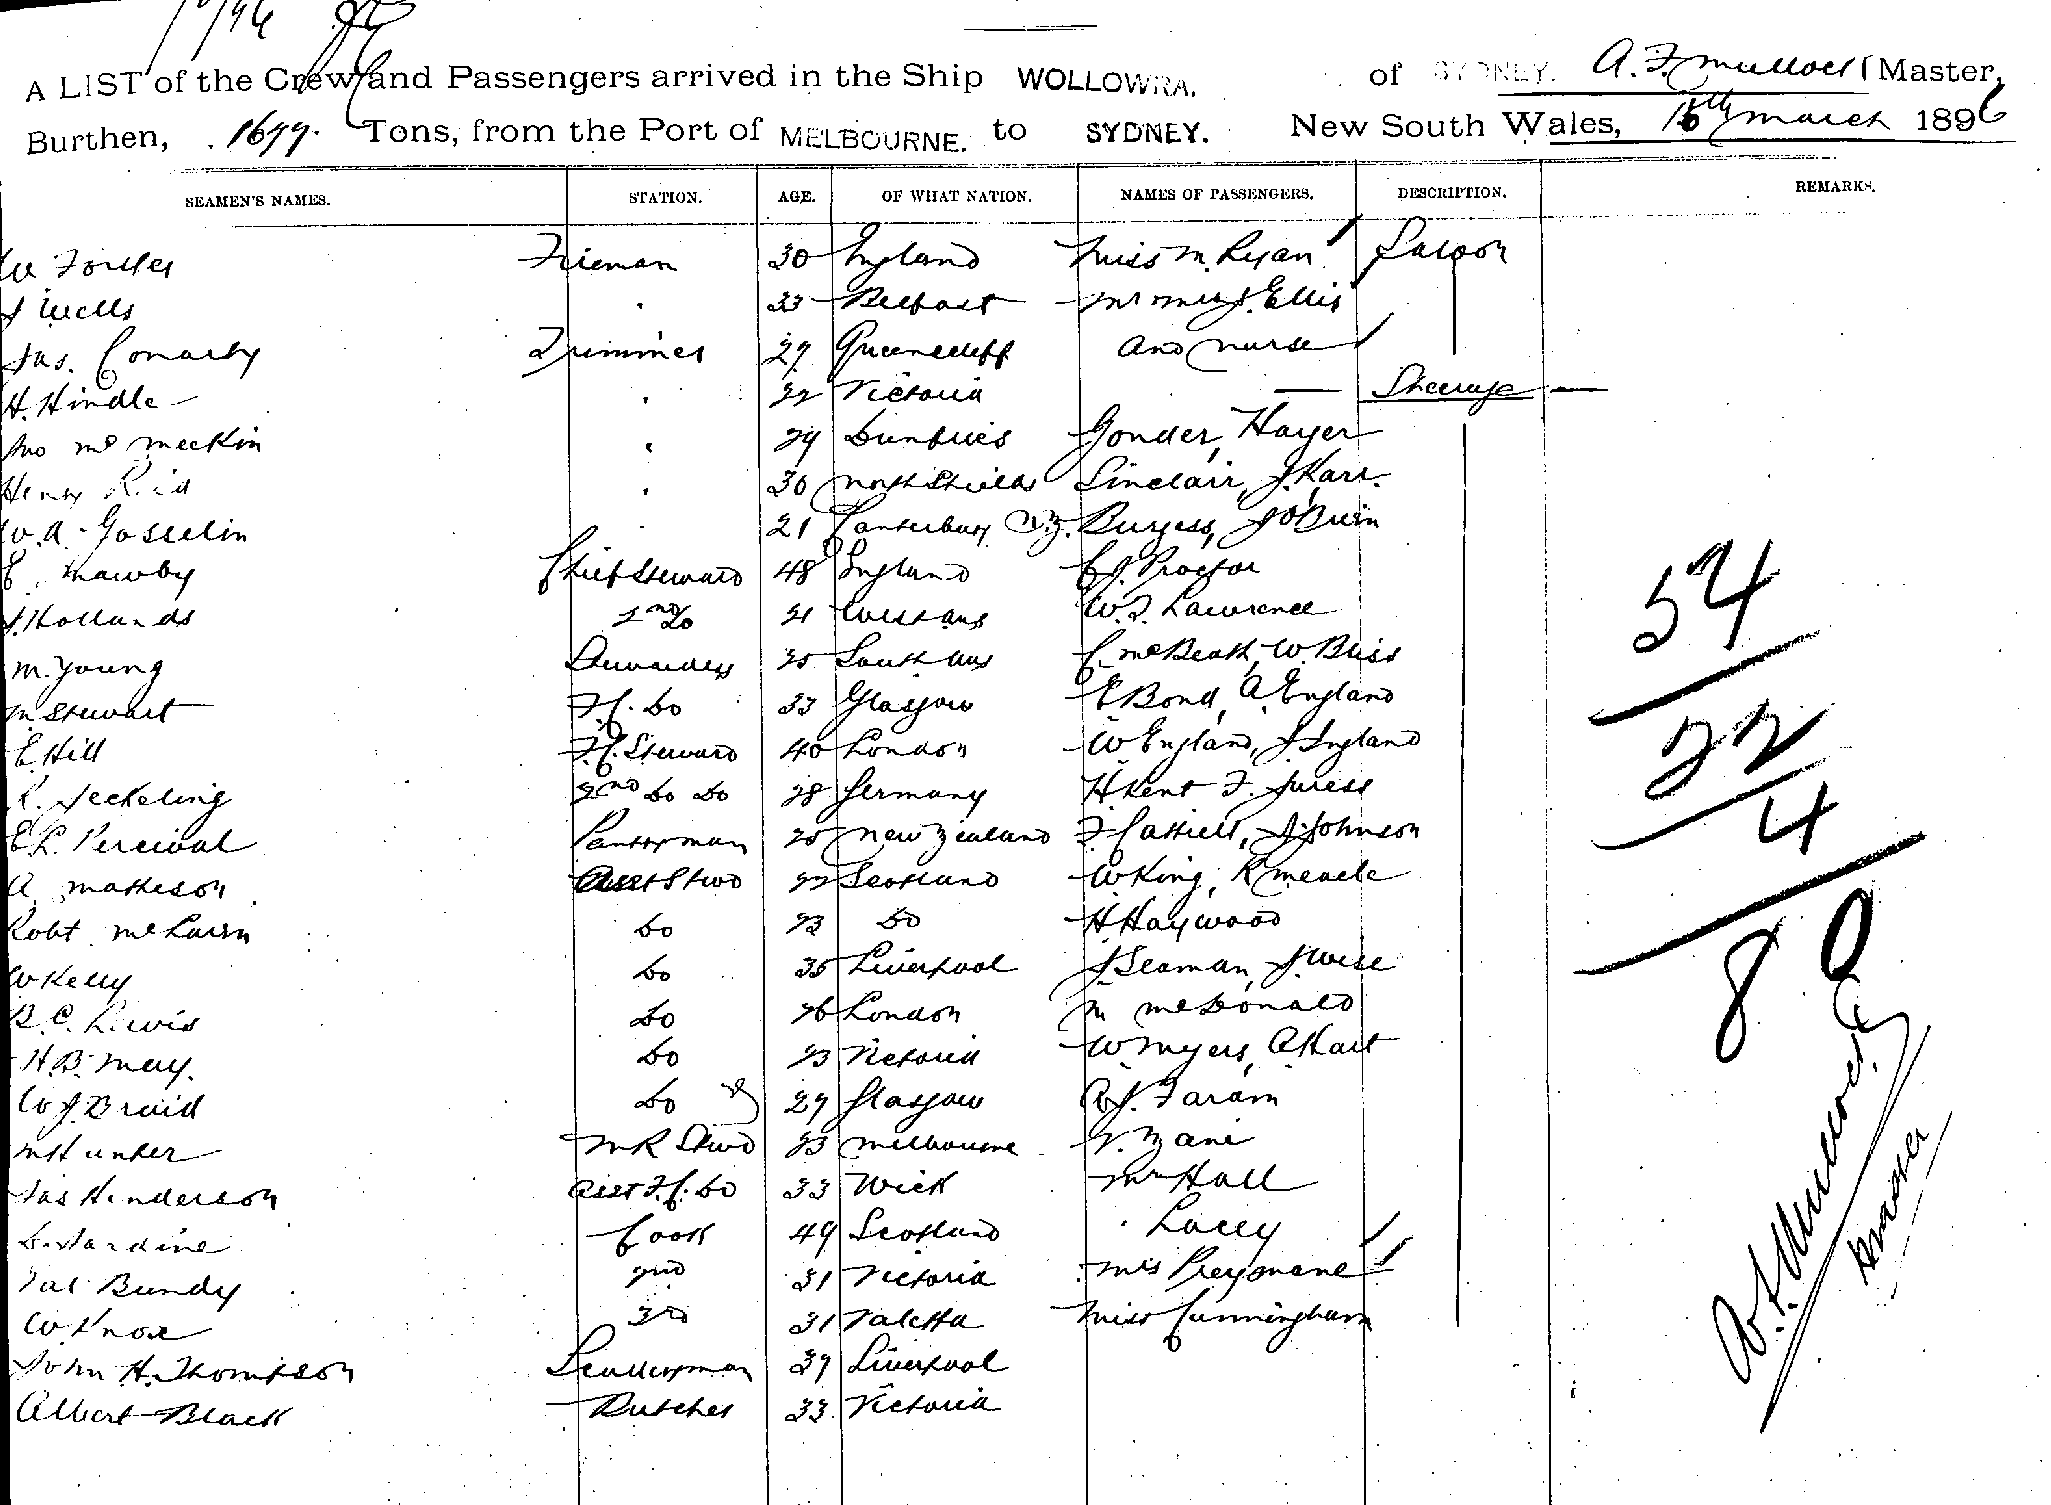 A LIST of the Crew and Passengers arrived in the Ship WOLLOWRA. of SYDNEY. A. F. Mullock Master,
Burthen, 1699. Tons, from the Port of MELBOURNE. to SYDNEY. New South Wales, 16th March 1896
SEAMEN'S NAMES. STATION. AGE. OF WHAT NATION. NAMES OF PASSENGERS. DESCRIPTION. REMARKS.
W Fireman 30 England Miss M. Ryan Saloon
J Wells 33 Belfast Mr Mrs J. Ellis
Jas. Trimmer 27 Queenscliff and nurse
H. Hindle 22 Victoria Steerage
Jno Mc Meekin 29 Dunfries Gonder, Hayer
Henry Reid 30 North Shields Sinclair, J. Karr.
W. A. Gosselin 21 Canterbury N.Z. Burgess, J O'Brien
E. Mawby Chief Steward 48 England E J. Proctor
J. Hollands 2nd Do 21 West aus W. J. Lawrence
M. Young Stewardess 35 South aus C. McBeath, W. Bliss
M Stewart F.C. Do 33 Glasgow E Bond, A. England
E. Hill F.C. Steward 40 London W England, J England
R. Jeckeling 2nd Do Do 28 Germany H Kent F.
E L. Percival Pantryman 20 New Zealand F J. Johnson
A. Matheson Asst Stwd 22 Scotland W King, R Meacle
Robt McLaren Do 23 Do H Haywood
W Kelly Do 35 Liverpool J Seaman, J. Wise
B. C. Lewis Do 26 London M McDonald
H. B. May. Do 23 Victoria W Myers, A Hart
W J. Braid Do 27 Glasgow A J. Faram
M Hunter MR Stwd 23 Melbourne
Jas Henderson Asst F.C. Do 33 Wick Mr Hall
D. Jardine Cook 49 Scotland Lacey
Bundy 2nd 31 Victoria Mrs
W Knox 3rd 31 Valetta Miss Cunningham
John H. Thompson Sculleryman 37 Liverpool
Albert Black Butcher 33 Victoria
54
22
4
80
A. F. Mullock
Master